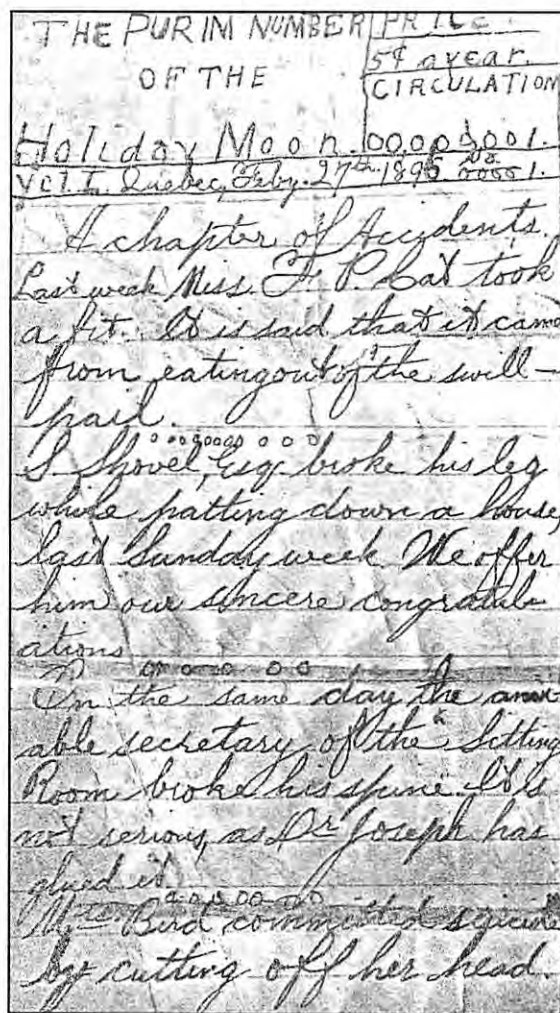 THE PURIM NUMBER
OF THE
Holiday Moon.
PRICE
5¢ a year.
CIRCULATION
00,000,001.
VOL I. Quebec, Feby. 27th 1896 No. 00001.
A chapter of Accidents.
Last week Miss. F. P. Cat took
a fit. It is said that it came
from eating out of the swill-
pail.
S. Shovel, Esq. broke his leg
while patting down a house,
last Sunday week. We offer
him our sincere congratul-
ations
On the same day the ami-
able secretary of the Sitting
Room broke his spine. It is
not serious, as Dr Joseph has
glued it.
Bird committed suicide
by cutting off her head.